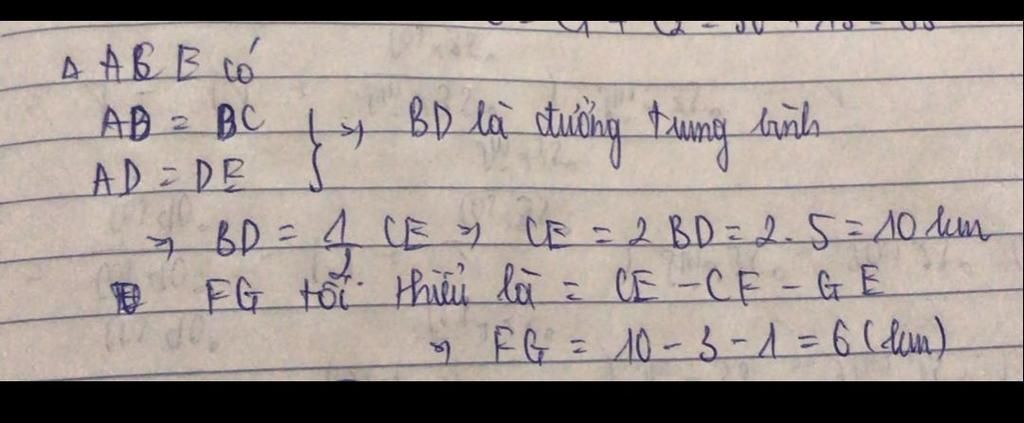 Δ ACE có
AB = BC } => BD là đường trung bình
AD = DE
=> BD = 1/2 CE => CE = 2 BD = 2.5 = 10 km
FG tối thiểu là = CE - CF - GE
=> FG = 10 - 3 - 1 = 6 (km)